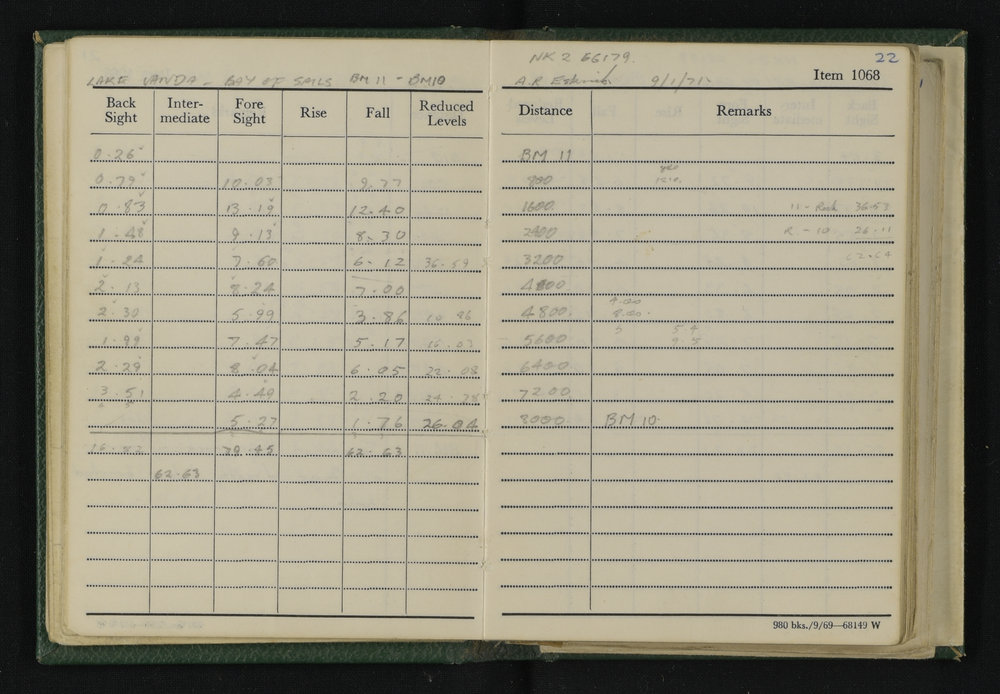 LAKE VANDA - BAY OF SAILS BM 11 - BM10
Back Sight Inter- mediate Fore Sight Rise Fall Reduced Levels
0.26
0.79 10.03 9.77
0.83 13.19 12.40
1.48 9.13 8.30
1.24 7.60 6.12 36.59
2.13 8.24 7.00
2.30 5.99 3.86 10.86
1.99 7.47 5.17 16.03
2.29 8.04 6.05 22.08
3.51 4.49 2.20 24.28
5.27 1.76 26.04
16.82 79.45 62.63
62.63
NK 2 66179. 22
A.R 9/1/71. Item 1068
Distance Remarks
BM 11
800
1600 11 - Rock 36.53
2400 R - 10 26.11
3200 62.64
4000
4800 4.00
8.00
5600
6400
7200
8000 BM 10
980 bks./9/69—68149 W